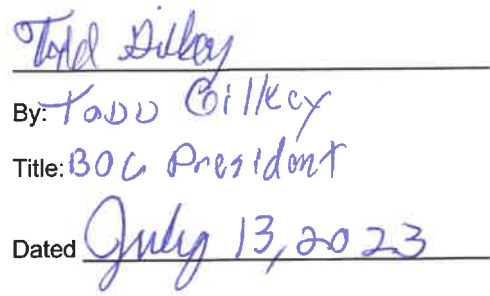 Todd Gilkey
By: TODD Gilkey
Title: BOG President
Dated July 13, 2023